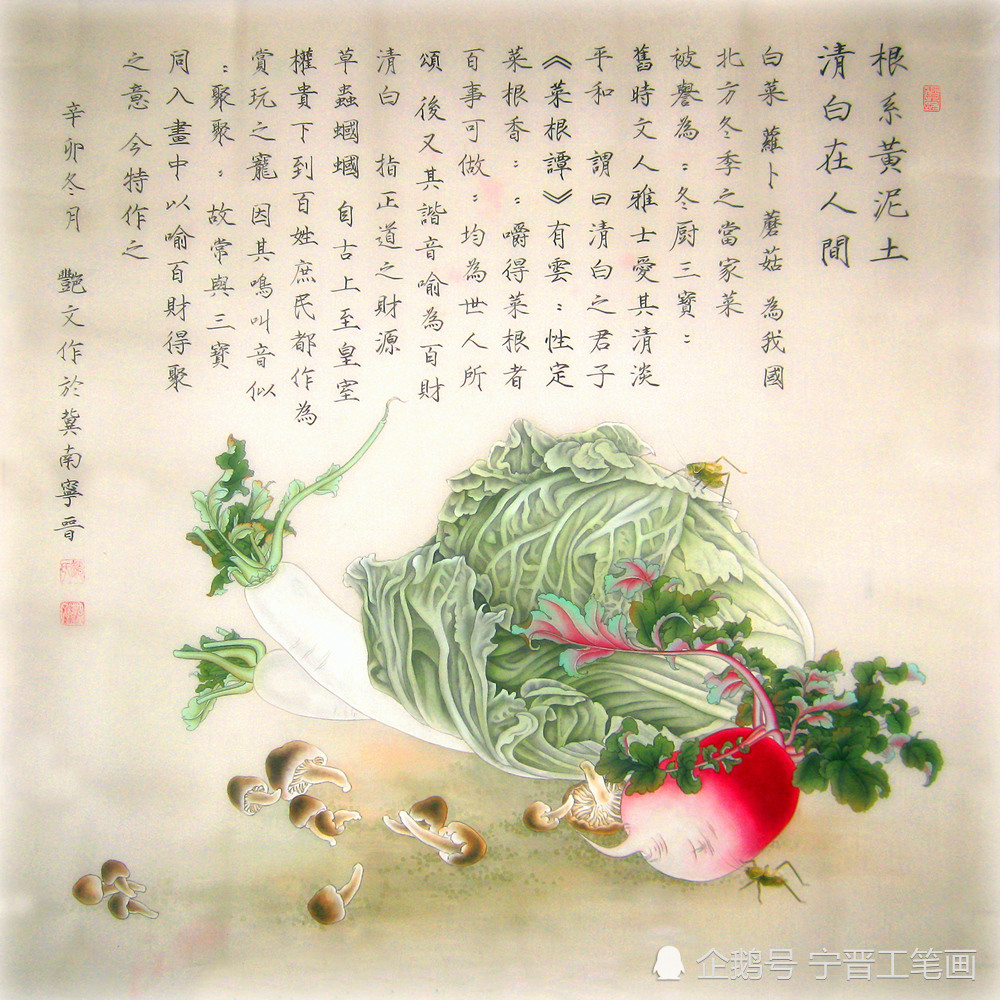 根系黃泥土
清白在人間
白菜 蘿卜 蘑菇 為我國
北方冬季之當家菜
被譽為：冬厨三寶：
舊時文人雅士愛其清淡
平和 謂曰清白之君子
《菜根譚》有雲：性定
菜根香：：嚼得菜根者
百事可做：均為世人所
頌 後又其諧音喻為百財
清白 指正道之財源
草蟲蟈蟈 自古上至皇室
權貴下到百姓庶民都作為
賞玩之寵 因其鳴叫音似
：聚聚：故常與三寶
同入畫中以喻百財得聚
之意 今特作之
辛卯冬月 艷文作於冀南寧晋
企鹅号 宁晋工笔画